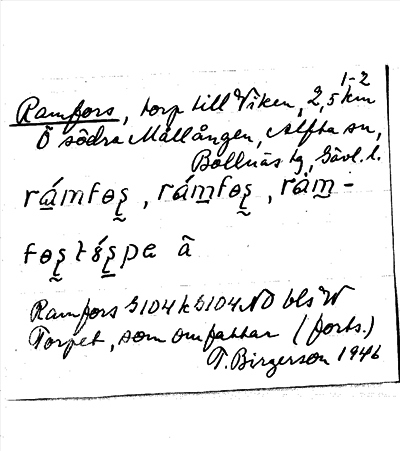 1-2
Ramfors, torp till Viken, 2,5 km
Ö södra Mållången, Alfta sn,
Bollnäs tg, Gävl. l.
rámfɵʂ, rámfɵʂ, ràm-
fɵʂ
Ramfors 5104 k 5104 NO bls W
Torpet, som omfattar (forts.)
T. Birgerson 1946